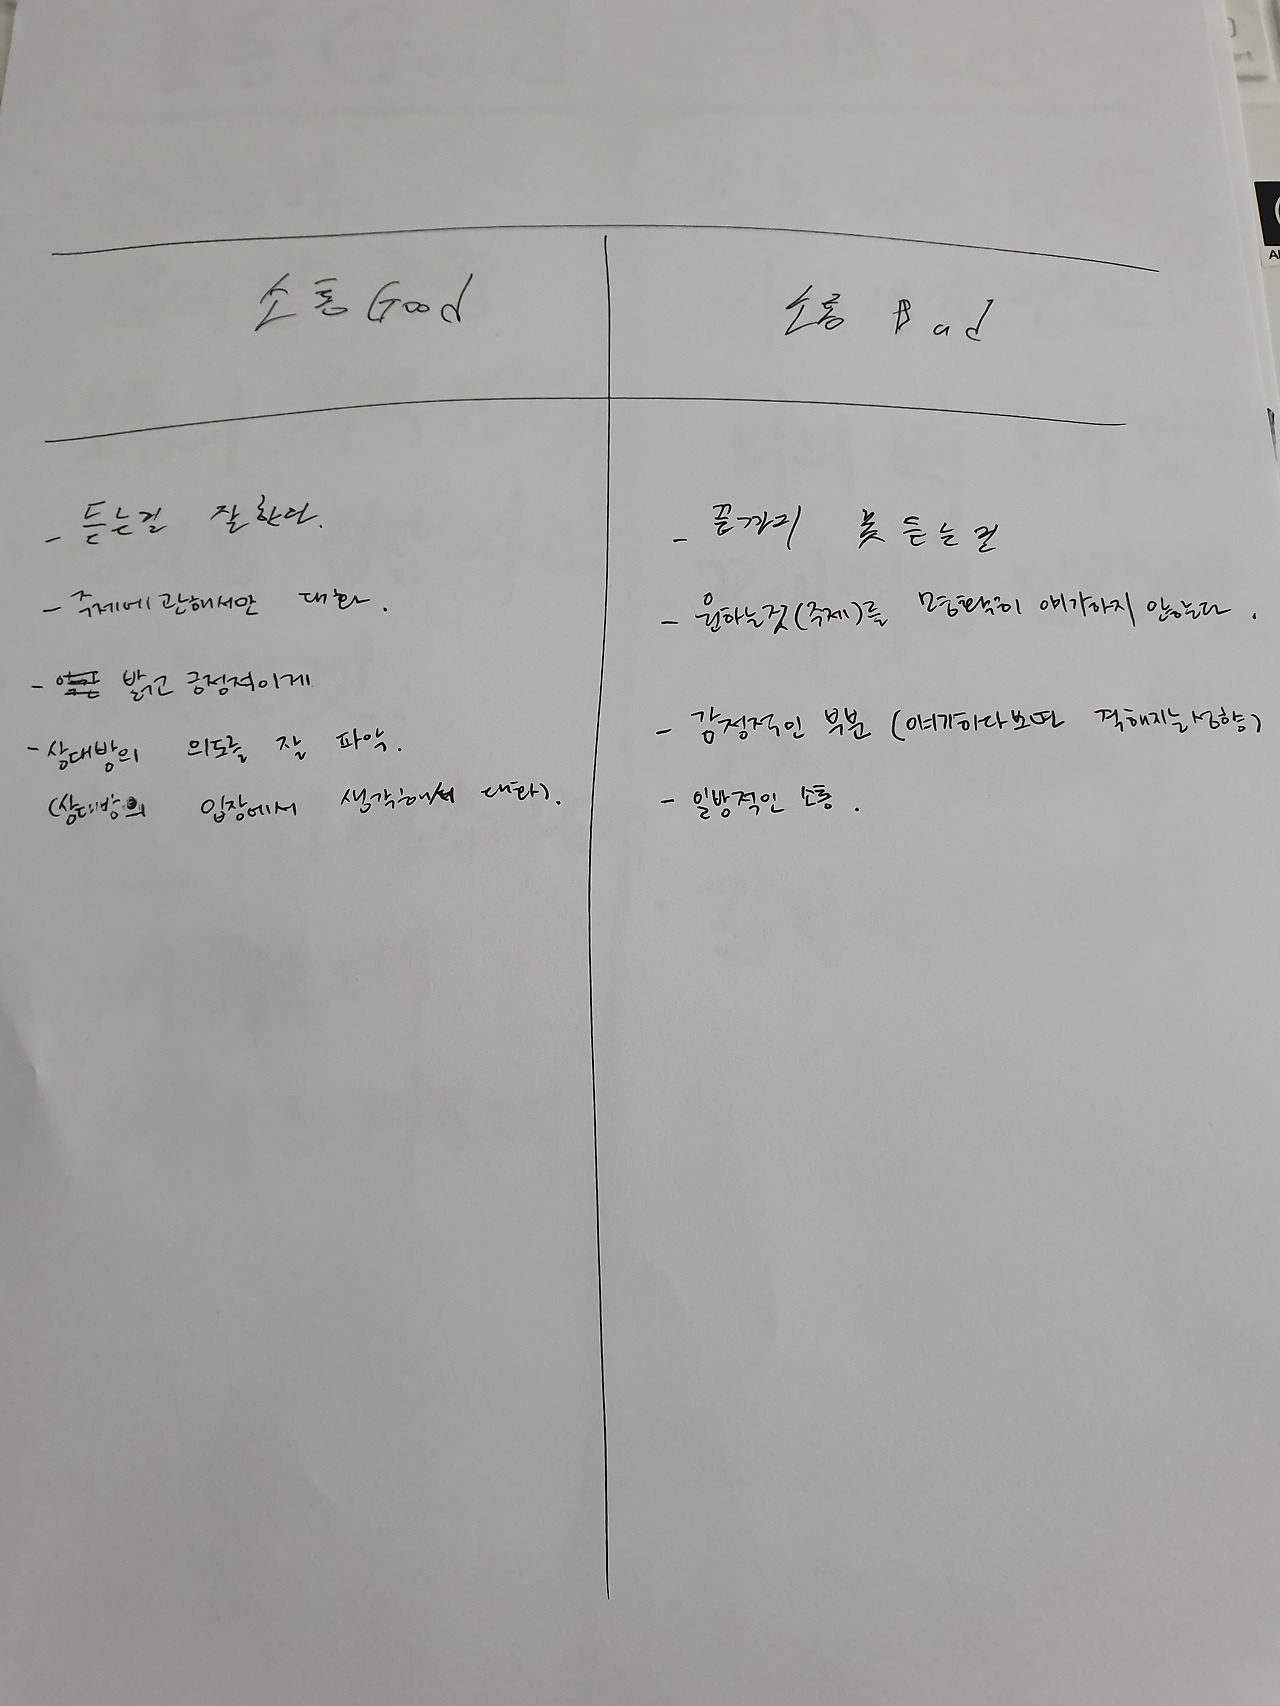 소통 Good
소통 Bad
- 듣는걸 잘한다.
- 주제에 관해서만 대화.
- 밝고 긍정적이게
- 상대방의 의도를 잘 파악.
(상대방의 입장에서 생각해서 대화).
- 끝까지 못 듣는걸
- 원하는것(주제)를 명확히 얘기하지 않는다.
- 감정적인 부분 (얘기하다보면 격해지는성향)
- 일방적인 소통.